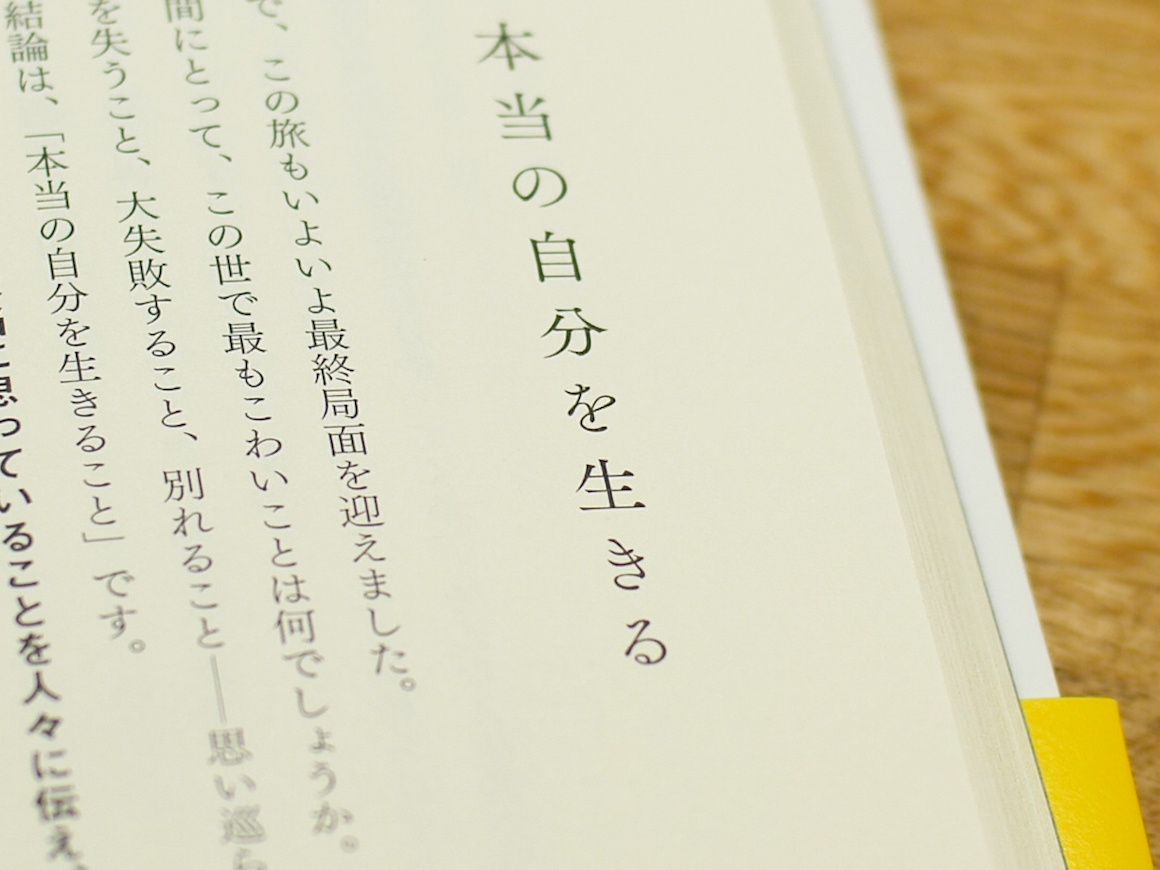 本当の自分を生きる
で、この旅もいよいよ最終局面を迎えました。
間にとって、この世で最もこわいことは何でしょうか。
を失うこと、大失敗すること、別れること——思い巡ら
結論は、「本当の自分を生きること」です。
に思っていることを人々に伝え、